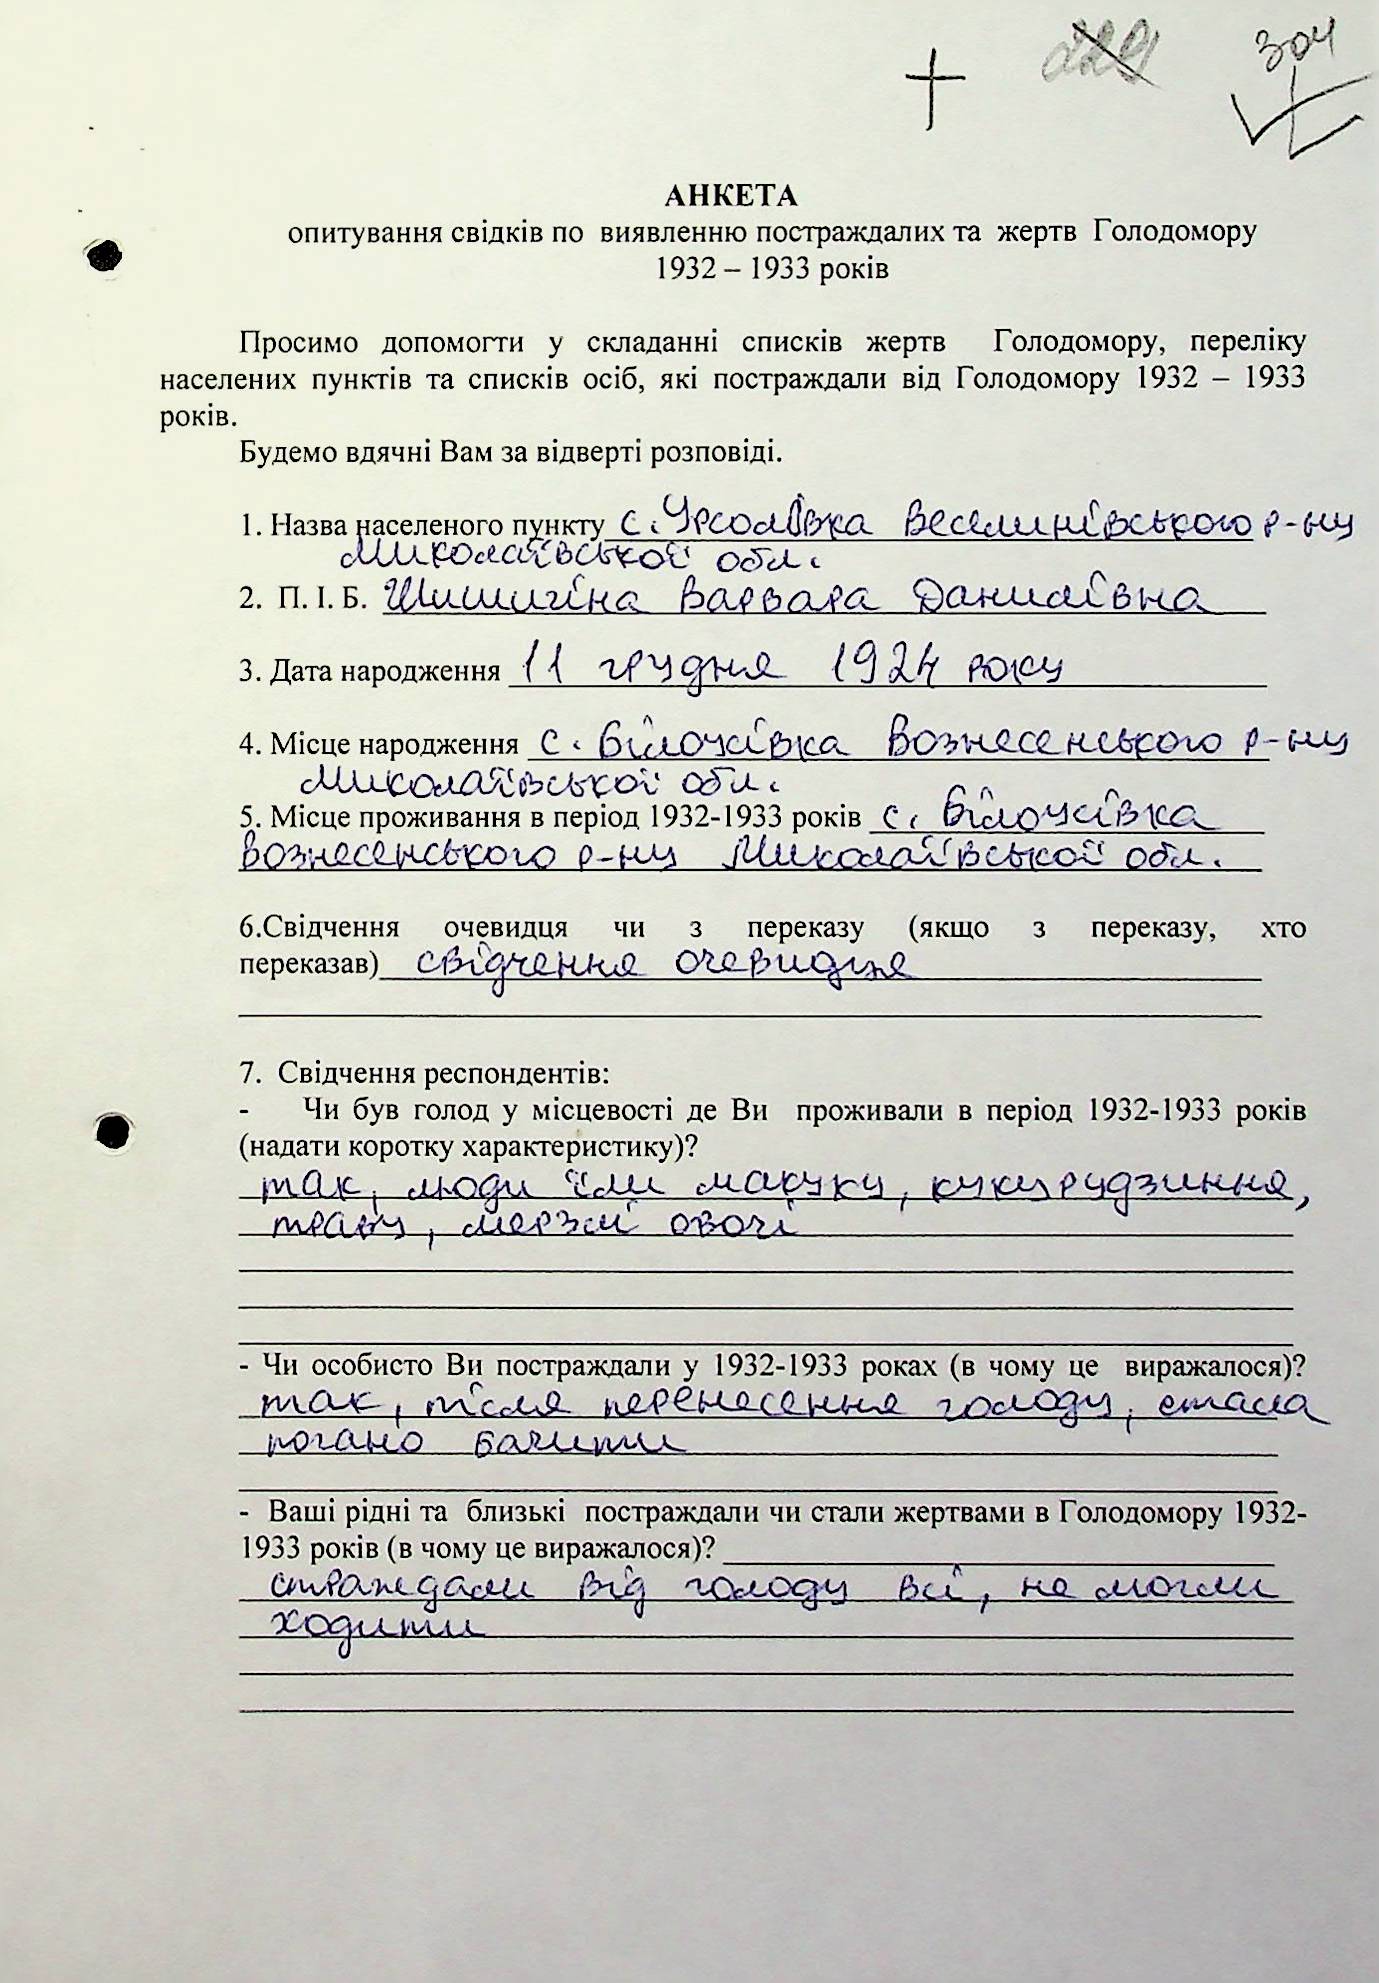 304
АНКЕТА
опитування свідків по виявленню постраждалих та жертв Голодомору
1932 – 1933 років
Просимо допомогти у складанні списків жертв Голодомору, переліку
населених пунктів та списків осіб, які постраждали від Голодомору 1932 – 1933
років.
Будемо вдячні Вам за відверті розповіді.
1. Назва населеного пункту с. Урсолівка Веселинівського р-ну
Миколаївської обл.
2. П. І. Б. Шишигіна Варвара Данилівна
3. Дата народження 11 грудня 1924 року
4. Місце народження с. Білоусівка Вознесенського р-ну
Миколаївської обл.
5. Місце проживання в період 1932-1933 років с. Білоусівка
Вознесенського р-ну Миколаївської обл.
6.Свідчення очевидця чи з переказу (якщо з переказу, хто
переказав) свідчення очевидця
7. Свідчення респондентів:
- Чи був голод у місцевості де Ви проживали в період 1932-1933 років
(надати коротку характеристику)?
так, люди їли макуху, кукурудзиння,
траву, мерзлі овочі
- Чи особисто Ви постраждали у 1932-1933 роках (в чому це виражалося)?
так, після перенесення голоду, стала
погано бачити
- Ваші рідні та близькі постраждали чи стали жертвами в Голодомору 1932-
1933 років (в чому це виражалося)?
страждали від голоду всі, не могли
ходити